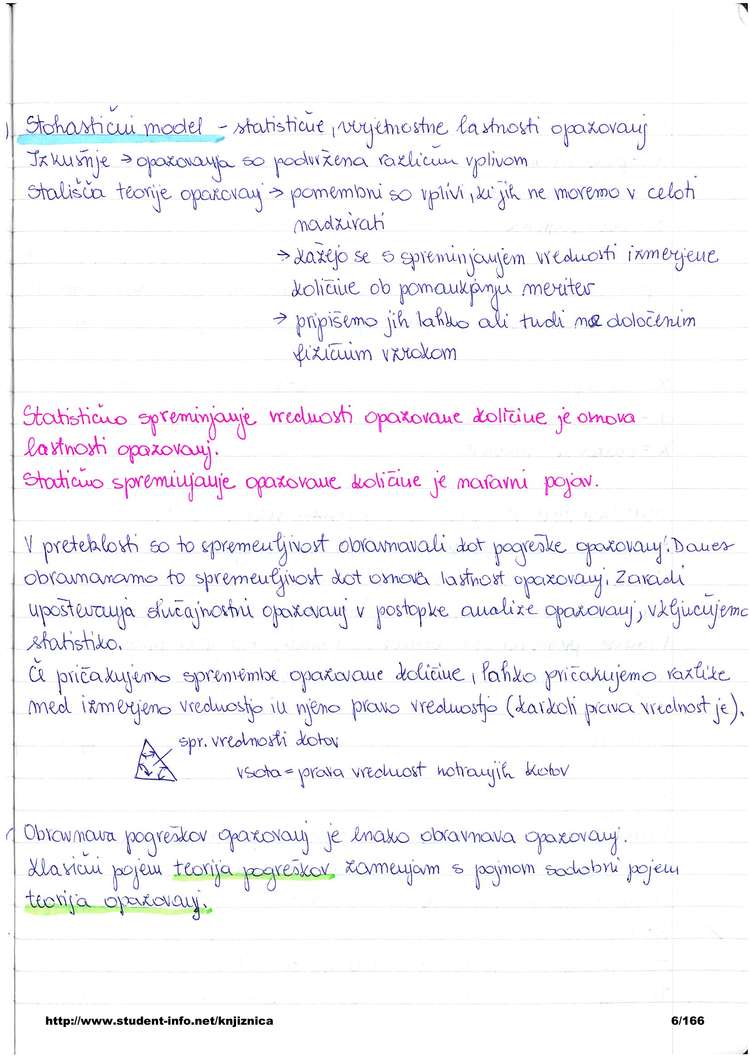 Stohastični model - statistične, verjetnostne lastnosti opazovanj
Izkušnje → opazovanja so podvržena različnim vplivom
Stališča teorije opazovanj → pomembni so vplivi, ki jih ne moremo v celoti
nadzirati
→ kažejo se s spreminjanjem vrednosti izmerjene
količine ob pomankjanju meritev
→ pripišemo jih lahko ali tudi ne določenim
fizičnim vzrokom
Statistično spreminjanje vrednosti opazovane količine je osnova
lastnosti opazovanj.
Statično spreminjanje opazovane količine je naravni pojav.
V preteklosti so to spremenljivost obravnavali kot pogreške opazovanj. Danes
obravnavamo to spremenljivost kot osnova lastnost opazovanj. Zaradi
upoštevanja slučajnostni opazovanj v postopke analize opazovanj, vključujemo
statistiko.
Če pričakujemo spremembe opazovane količine, lahko pričakujemo razlike
med izmerjeno vrednostjo in njeno pravo vrednostjo (karkoli prava vrednost je).
spr. vrednosti kotov
vsota = prava vrednost notranjih kotov
Obravnava pogreškov opazovanj je enako obravnava opazovanj.
Klasični pojem teorija pogreškov zamenjam s pojmom sodobni pojem
teorija opazovanj.
http://www.student-info.net/knjiznica 6/166